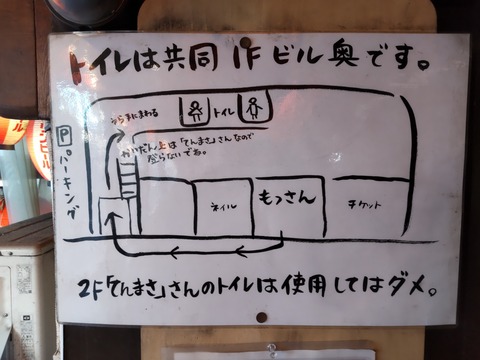 トイレは共同 1F ビル奥です。
うら手にまわる
トイレ
かいだん上は「てんまさ」さんなので
登らないでね。
P パーキング
ネイル
もっさん
チケット
2F「てんまさ」さんのトイレは使用してはダメ。